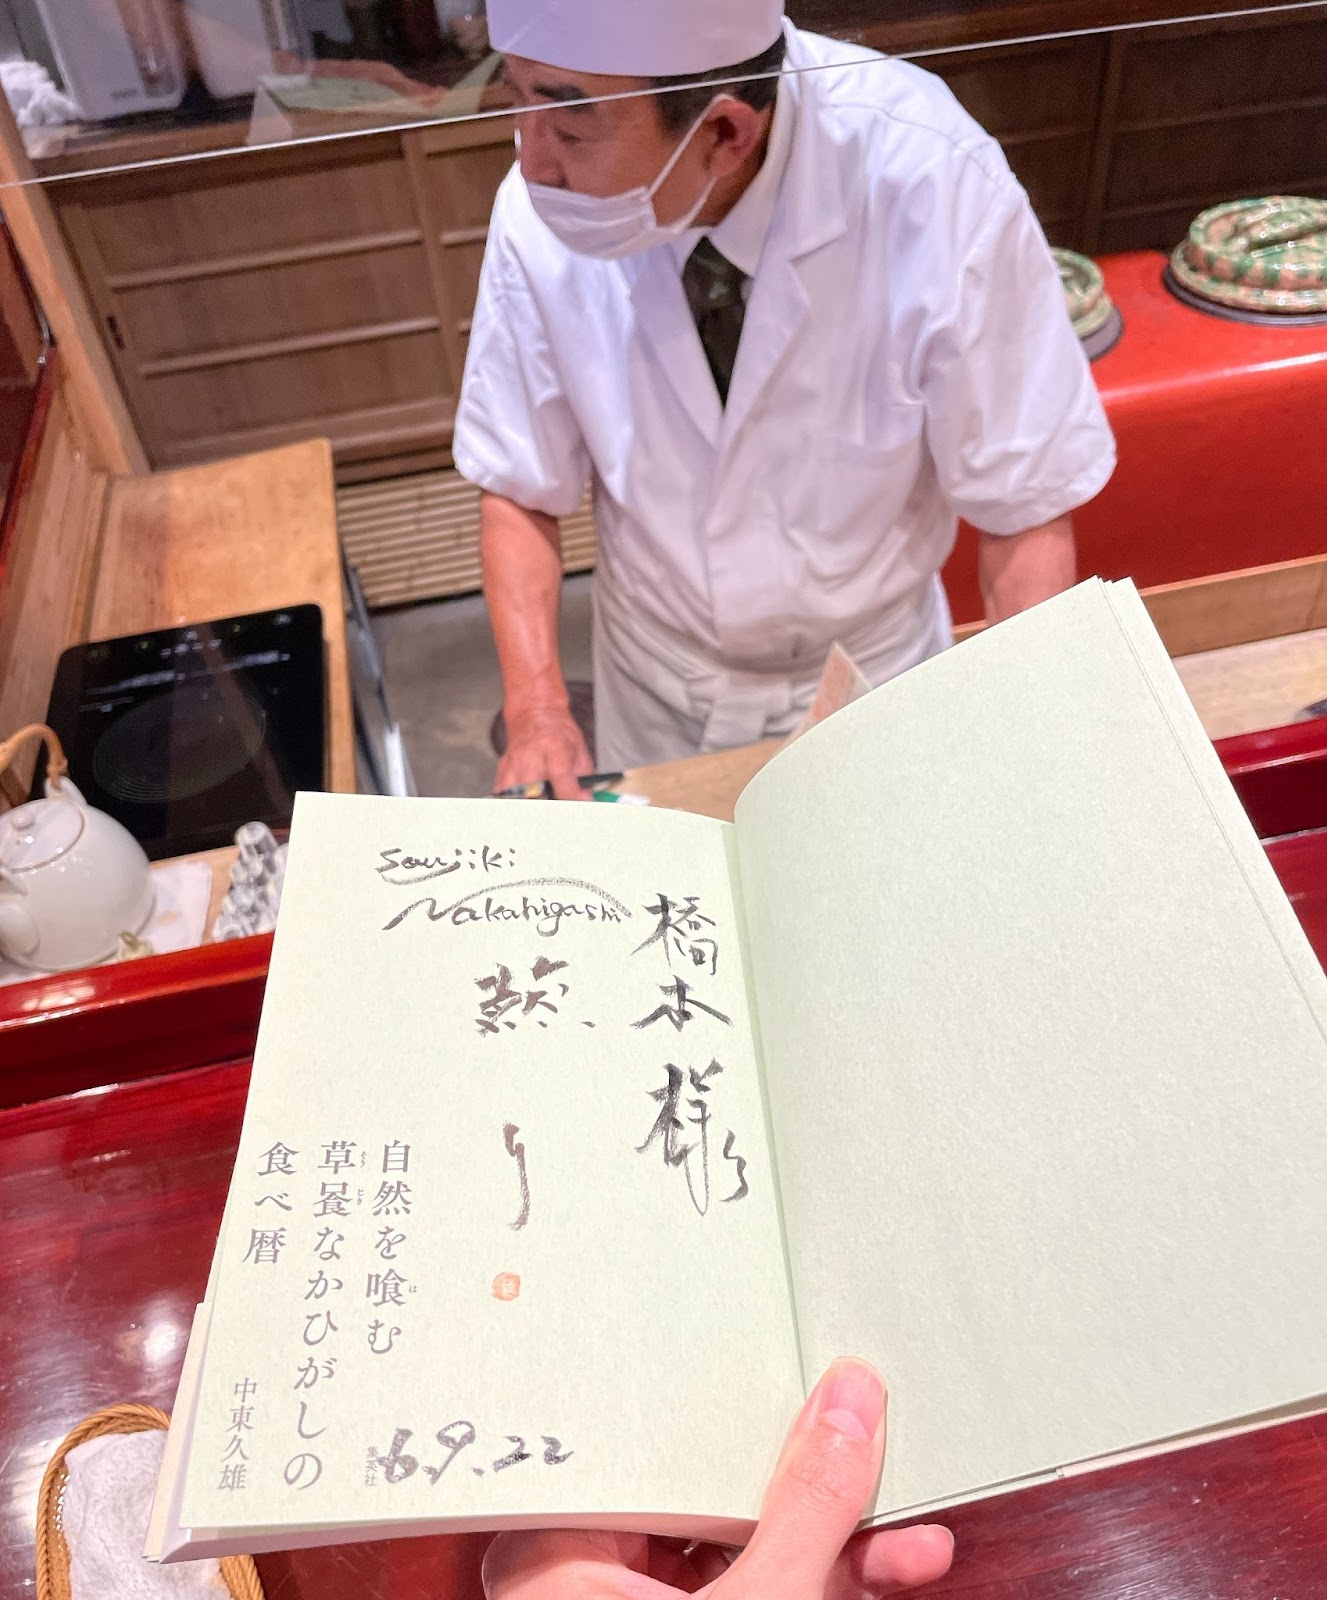 Soujiki
Nakahigashi
橋本様
自然を喰む
は
草喰なかひがしの
そう
じき
食べ暦
中東久雄
集英社
6.9.22